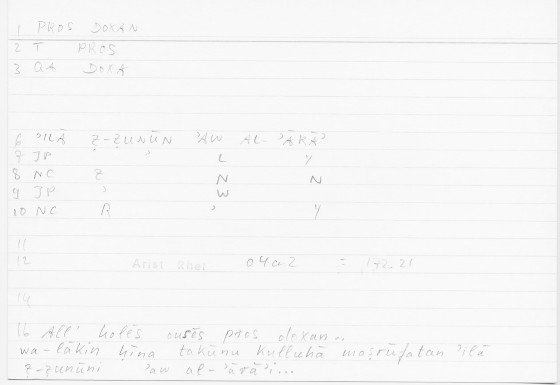 1 PROS DOXAN
2 T PROS
3 QA DOXA
6 ʾILĀ Ẓ-ẒUNŪN ʾAW AL-ʾĀRĀʾ
7 JP ʾ L Y
8 NC Ẓ N N
9 JP ʾ W
10 NC R ʾ Y
11
12 Arist Rhet 04a2 = 132.21
14
16 All' holēs ousēs pros doxan..
wa-lākin ḥīna takūnu kulluhā maṣrūfatan ʾilā
ẓ-ẓunūni ʾaw al-ʾārāʾi...